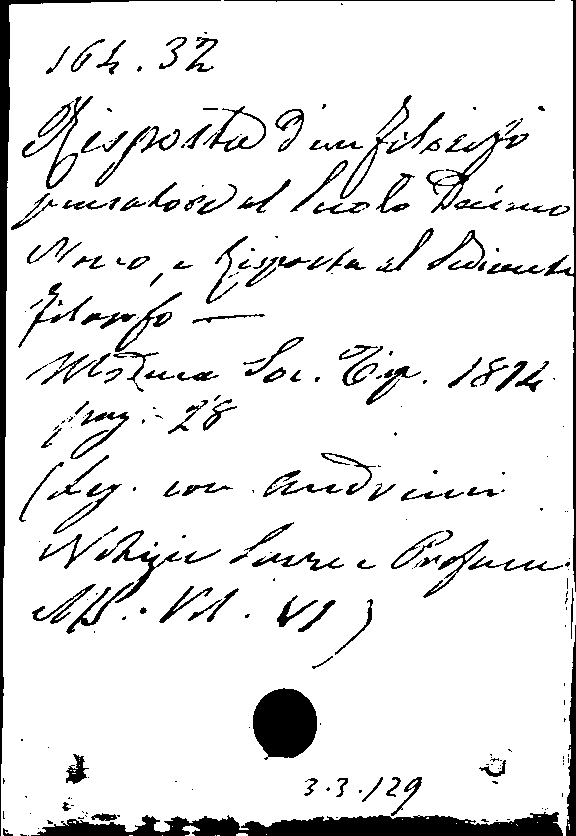 164.32
Risposta d'un filosofo
pensatore al Secolo Decimo
Nono, e Risposta al Sedicente
filosofo —
Modena Soc. Tip. 1814
pag. 28
(Leg. con Andreini
Notizie Sacre e Profane
MS. Vol. VI)
3.3.129